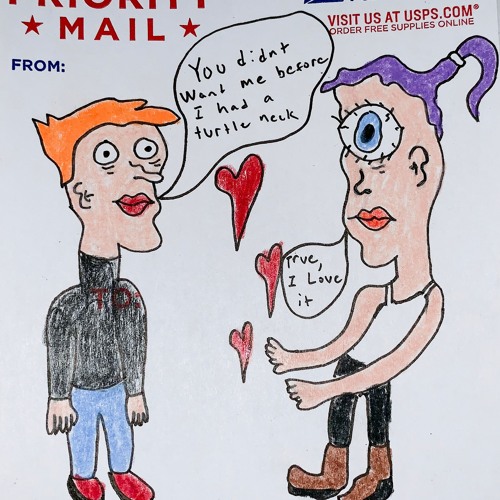 PRIORITY
★ MAIL ★
VISIT US AT USPS.COM®
ORDER FREE SUPPLIES ONLINE
FROM:
You didnt
want me before
I had a
turtle neck
True,
I Love
it
TO: